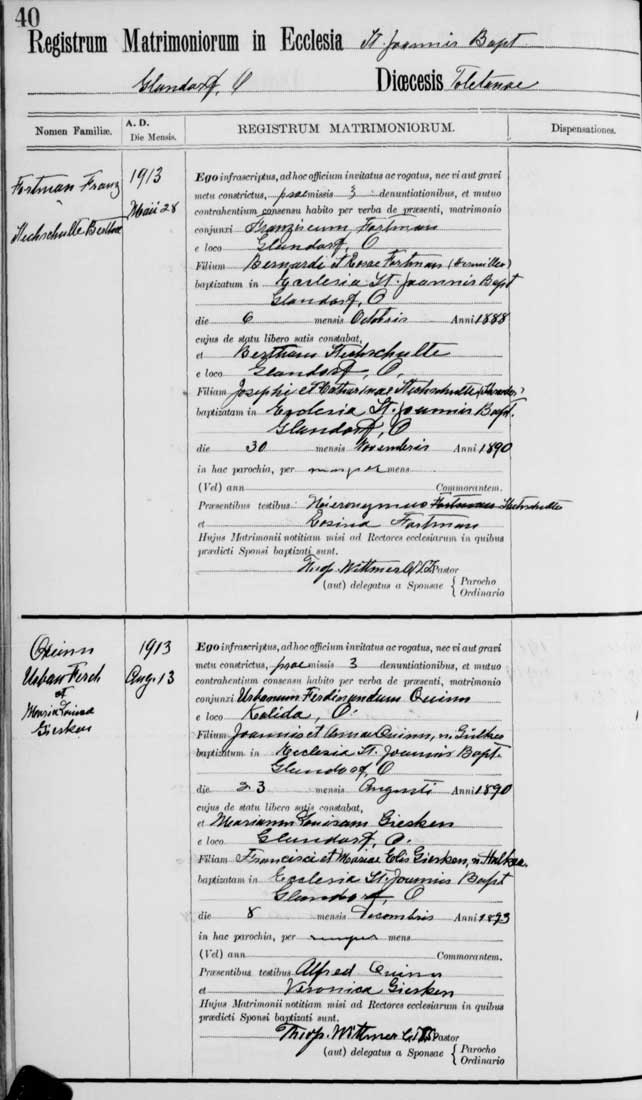 40
Registrum Matrimoniorum in Ecclesia St. Joannis Bapt
Glandorf, O Diœcesis Toletanae
Nomen Familiæ. A. D. Die Mensis. REGISTRUM MATRIMONIORUM. Dispensationes.
Fortman Franz
Stechschulte Bertha
1913
Maii 28
Ego infrascriptus, ad hoc officium invitatus ac rogatus, nec vi aut gravi
metu constrictus, praemissis 3 denuntiationibus, et mutuo
contrahentium consensu habito per verba de præsenti, matrimonio
conjunxi Franziscum Fortman
e loco Glandorf, O
Filium Bernardi et Rosae Fortman
baptizatum in Ecclesia St. Joannis Bapt
Glandorf, O
die 6 mensis Octobris Anni 1888
cujus de statu libero satis constabat,
et Bertham Stechschulte
e loco Glandorf, O,
Filiam Josephi et Catharinae Stechschulte
baptizatam in Ecclesia St. Joannis Bapt.
Glandorf, O
die 30 mensis Novembris Anni 1890
in hac parochia, per mens
(Vel) ann Commorantem.
Præsentibus testibus Hieronymus Fortman Stechschulte
et Rosina Fortman
Hujus Matrimonii notitiam misi ad Rectores ecclesiarum in quibus
prædicti Sponsi baptizati sunt.
Theop. Wittmer Pastor
(aut) delegatus a Sponsae { Parocho
Ordinario
Quinn
Urban Ferd
et
Maria Louisa
Giesken
1913
Aug. 13
Ego infrascriptus, ad hoc officium invitatus ac rogatus, nec vi aut gravi
metu constrictus, praemissis 3 denuntiationibus, et mutuo
contrahentium consensu habito per verba de præsenti, matrimonio
conjunxi Urbanum Ferdinandum Quinn
e loco Kalida, O.
Filium Joannis et Annae Quinn, n.
baptizatum in Ecclesia St. Joannis Bapt.
Glandorf, O
die 23 mensis Augusti Anni 1890
cujus de statu libero satis constabat,
et Mariam Louisam Giesken
e loco Glandorf, O.
Filiam Francisci et Mariae Elis Giesken, n.
baptizatam in Ecclesia St. Joannis Bapt
Glandorf, O
die 8 mensis Decembris Anni 1893
in hac parochia, per mens
(Vel) ann Commorantem.
Præsentibus testibus Alfred Quinn
et Veronica Giesken
Hujus Matrimonii notitiam misi ad Rectores ecclesiarum in quibus
prædicti Sponsi baptizati sunt.
Theop. Wittmer Pastor
(aut) delegatus a Sponsae { Parocho
Ordinario